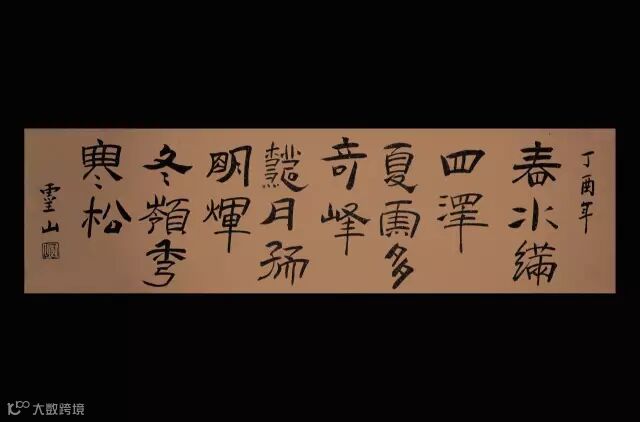 丁酉年
春水滿
四澤
夏雲多
奇峰
秋月揚
明輝
冬嶺秀
寒松
靈山
大数跨境